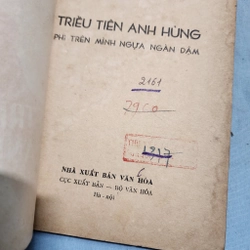 TRIỀU TIÊN ANH HÙNG
PHI TRÊN MÌNH NGỰA NGÀN DẶM
2161
NHÀ XUẤT BẢN VĂN HÓA
CỤC XUẤT BẢN — BỘ VĂN HÓA
Hà-nội